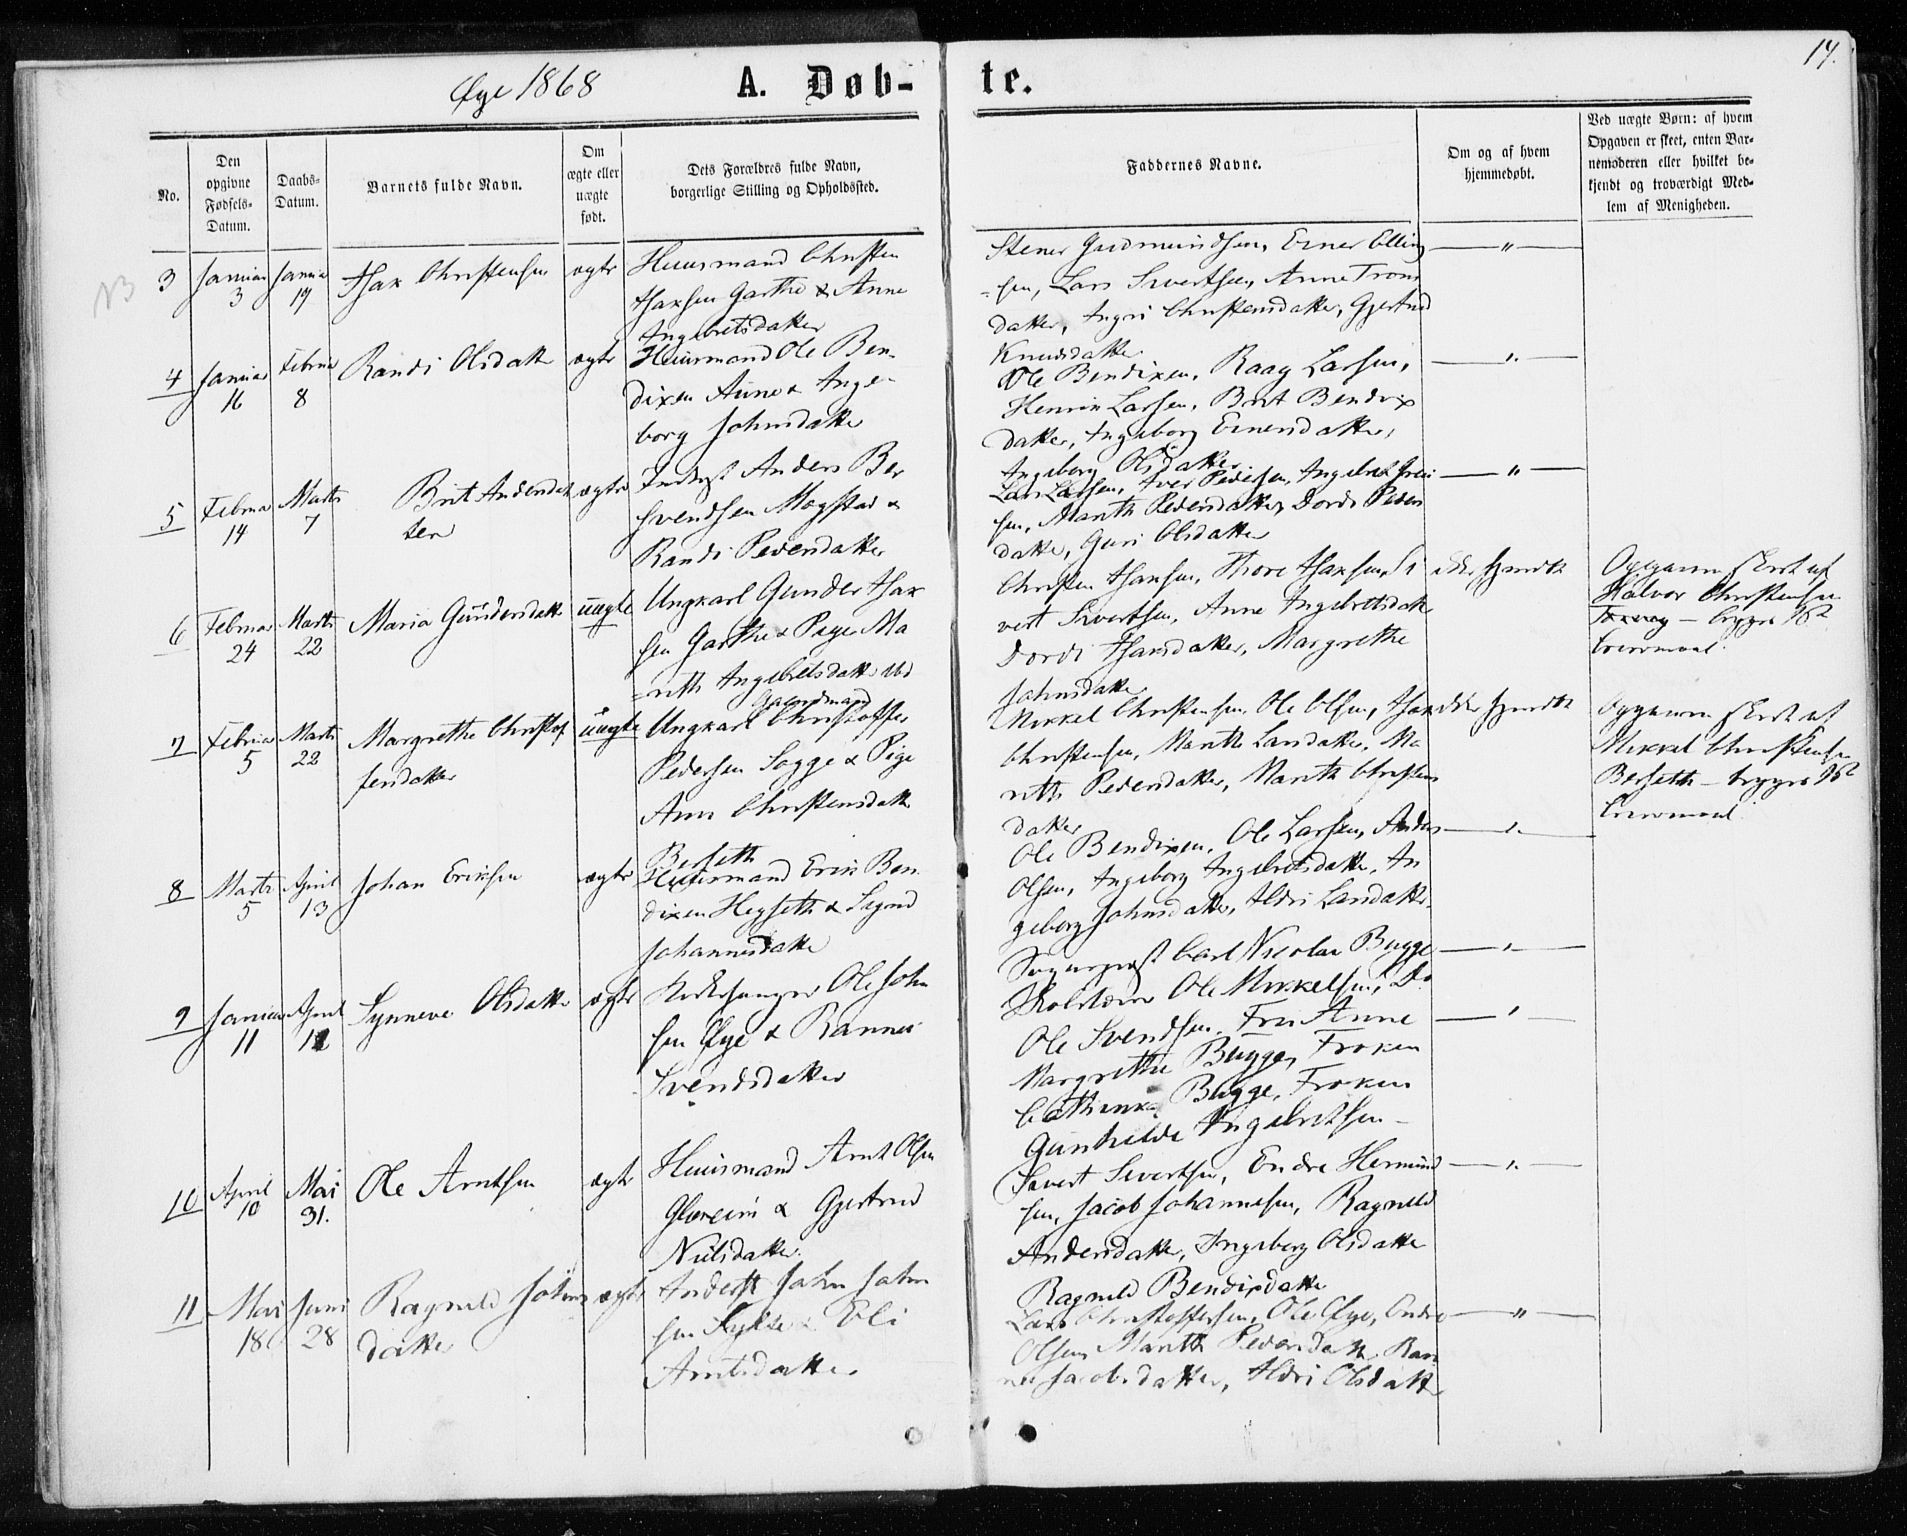 Øye 1868
A. Døb-
te.
14.
No.
Den
opgivne
Fødsels-
Datum.
Daabs-
Datum.
Barnets fulde Navn.
Om
ægte eller
uægte
født.
Dets Forældres fulde Navn,
borgerlige Stilling og Opholdssted.
Faddernes Navne.
Om og af hvem
hjemmedøbt.
Ved uægte Børn: af hvem
Opgaven er skeet, enten Bar-
nemoderen eller hvilket be-
kjendt og troværdigt Med-
lem af Menigheden.
NB
3
Januar
3
Januar
19
Isak Christensen
ægte
Huusmand Christen
Isaksen Garthe & Anne
Ingebretsdatter
Stener Gudmundsen, Einer Elling
sen, Lars Sivertsen, Anne Trons
datter, Ingri Christensdatter, Gjertrud
Knudsdatter
4
Januar
16
Februar
8
Randi Olsdatter
ægte
Huusmand Ole Ben-
dixen Aune & Inge-
borg Johnsdatter
Ole Bendixen, Raag Larsen,
Henrik Larsen, Brit Bendix
datter, Ingeborg Einersdatter,
Ingeborg Olsdatter
5
Februar
14
Marts
7
Brit Andersdat
ter
ægte
Inderst Anders Ber
svendsen Mogstad &
Randi Pedersdatter
Lars Larsen, Iver Pedersen, Ingebret Iver
sen, Marith Pedersdatter, Dordi Peders
datter, Guri Olsdatter
6
Februar
24
Marts
22
Maria Gundersdatter
uægte
Ungkarl Gunder Isak
sen Garthe & Pige Ma
rith Ingebretsdatter
Christen Isaksen, Thore Isaksen, Si
vert Sivertsen, Anne Ingebretsdatter
Dordi Isaksdatter, Margrethe
Johnsdatter
ikke hjemdt
Opgaven skeet af
Halvor Christensen
– begges 1ste
Leiermaal.
7
Februar
5
Marts
22
Margrethe Christof
fersdatter
uægte
Gaardmand
Ungkarl Christoffer
Pedersen Sogge & Pige
Ane Christensdatter
Berseth
Mikkel Christensen, Ole Olsen, Isak
Christensen, Marith Larsdatter, Ma
rith Pedersdatter, Marith Christens
datter
ikke hjemdt
Opgaven skeet af
Mikkel Christensen
Berseth – begges 1ste
Leiermaal.
8
Marts
5
April
13
Johan Eriksen
ægte
Huusmand Erik Ben
dixen Hegseth & Signe
Johannesdatter
Ole Bendixen, Ole Larsen, Anders
Olsen, Ingeborg Ingebretsdatter, In
geborg Johnsdatter, Ildri Larsdatter
9
Januar
11
April
12
Synneve Olsdatter
ægte
Kirkesanger Ole John
sen Øye & Rannei
Svendsdatter
Sognepræst Carl Nicolai Bugge
Skolelærer Ole Mikkelsen, Do
Ole Svendsen, Fru Anne
Margrethe Bugge, Frøken
Cathinka Bugge, Frøken
Gunhilde Ingebretsen –
10
April
10
Mai
31.
Ole Arntsen
ægte
Huusmand Arnt Olsen
Glæreim & Gjertrud
Nielsdatter.
Sivert Sivertsen, Endre Hermund
sen, Jacob Johannesen, Ragnild
Andersdatter, Ingeborg Olsdatter
Ragnild Bendixdatter
11
Mai
18
Juni
28
Ragnild Johns
datter
ægte
Inderst John John
sen Sylte & Eli
Arntsdatter.
Lars Christoffersen, Ole Øye, Endre
Olsen, Marith Pedersdatter, Ran
nei Jacobsdatter, Ildri Olsdatter